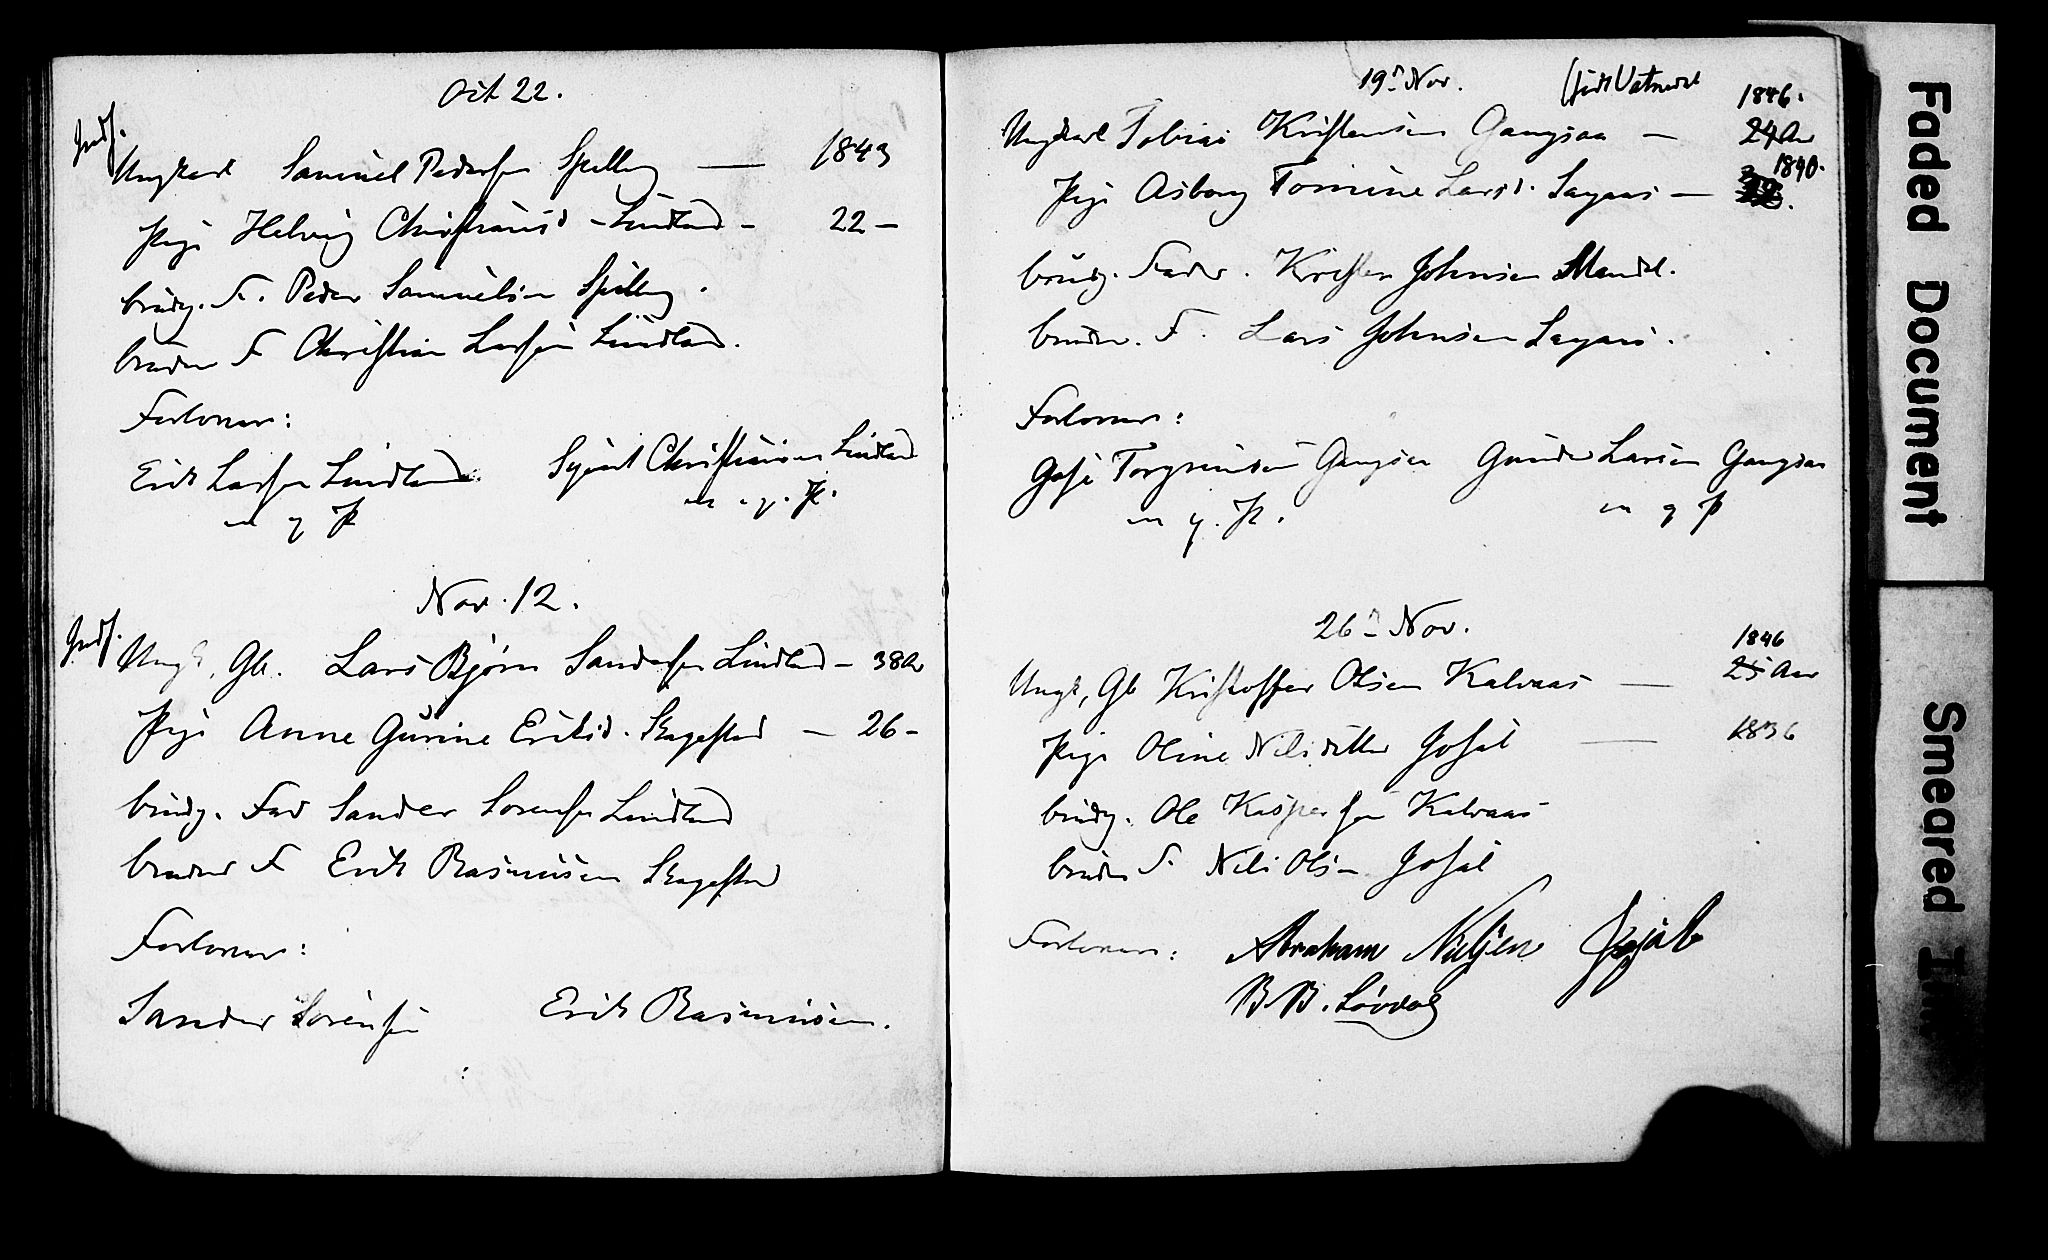 Oct 22.
Indf.
Ungkarl Samuel Pedersen Spilling — 1843
Pige Helvig Christiansd – Lindland – 22 –
brudg. F. Peder Samuelsen Spilling.
bruden F Christian Larsen Lindland.
Forlovere:
Erik Larsen Lindland. Sigvert Christiansen Lindland
m p P m. p. P.
Nov. 12.
Indf.
Ungk, Gb. Lars Bjørn Sandersen Lindland – 38 Ar
Pige Anne Gurine Eriksd. Skagestad – 26 –
brudg. Fad Sander Sorensen Lindland
brudens F Erik Rasmusen Skagestad
Forlovere:
Sander Sorensen Erik Rasmusen.
19d Nov.
1846.
Ungkarl Tobias Kristensen Gangsaa — 24 Aar
1840.
Pige Asborg Tomine Larsd.
brudg. Fader. Kristen Johnsen Mandal.
bruden. F. Lars Johnsen
Forlovere:
Torgrimsen Gangsaa Gunder Larsen Gangsaa
m p. P. m p P
26d Nov.
1846
Ungk, Gb Kristoffer Olsen Kalvaas — 25 Aar
Pige Oline Nilsdatter Josøl — 1836
brudg. Ole Kaspersen Kalvaas
bruden F. Nils Olsen Josøl
Forlovere: Abraham Nilsen
B. B. Løvdal